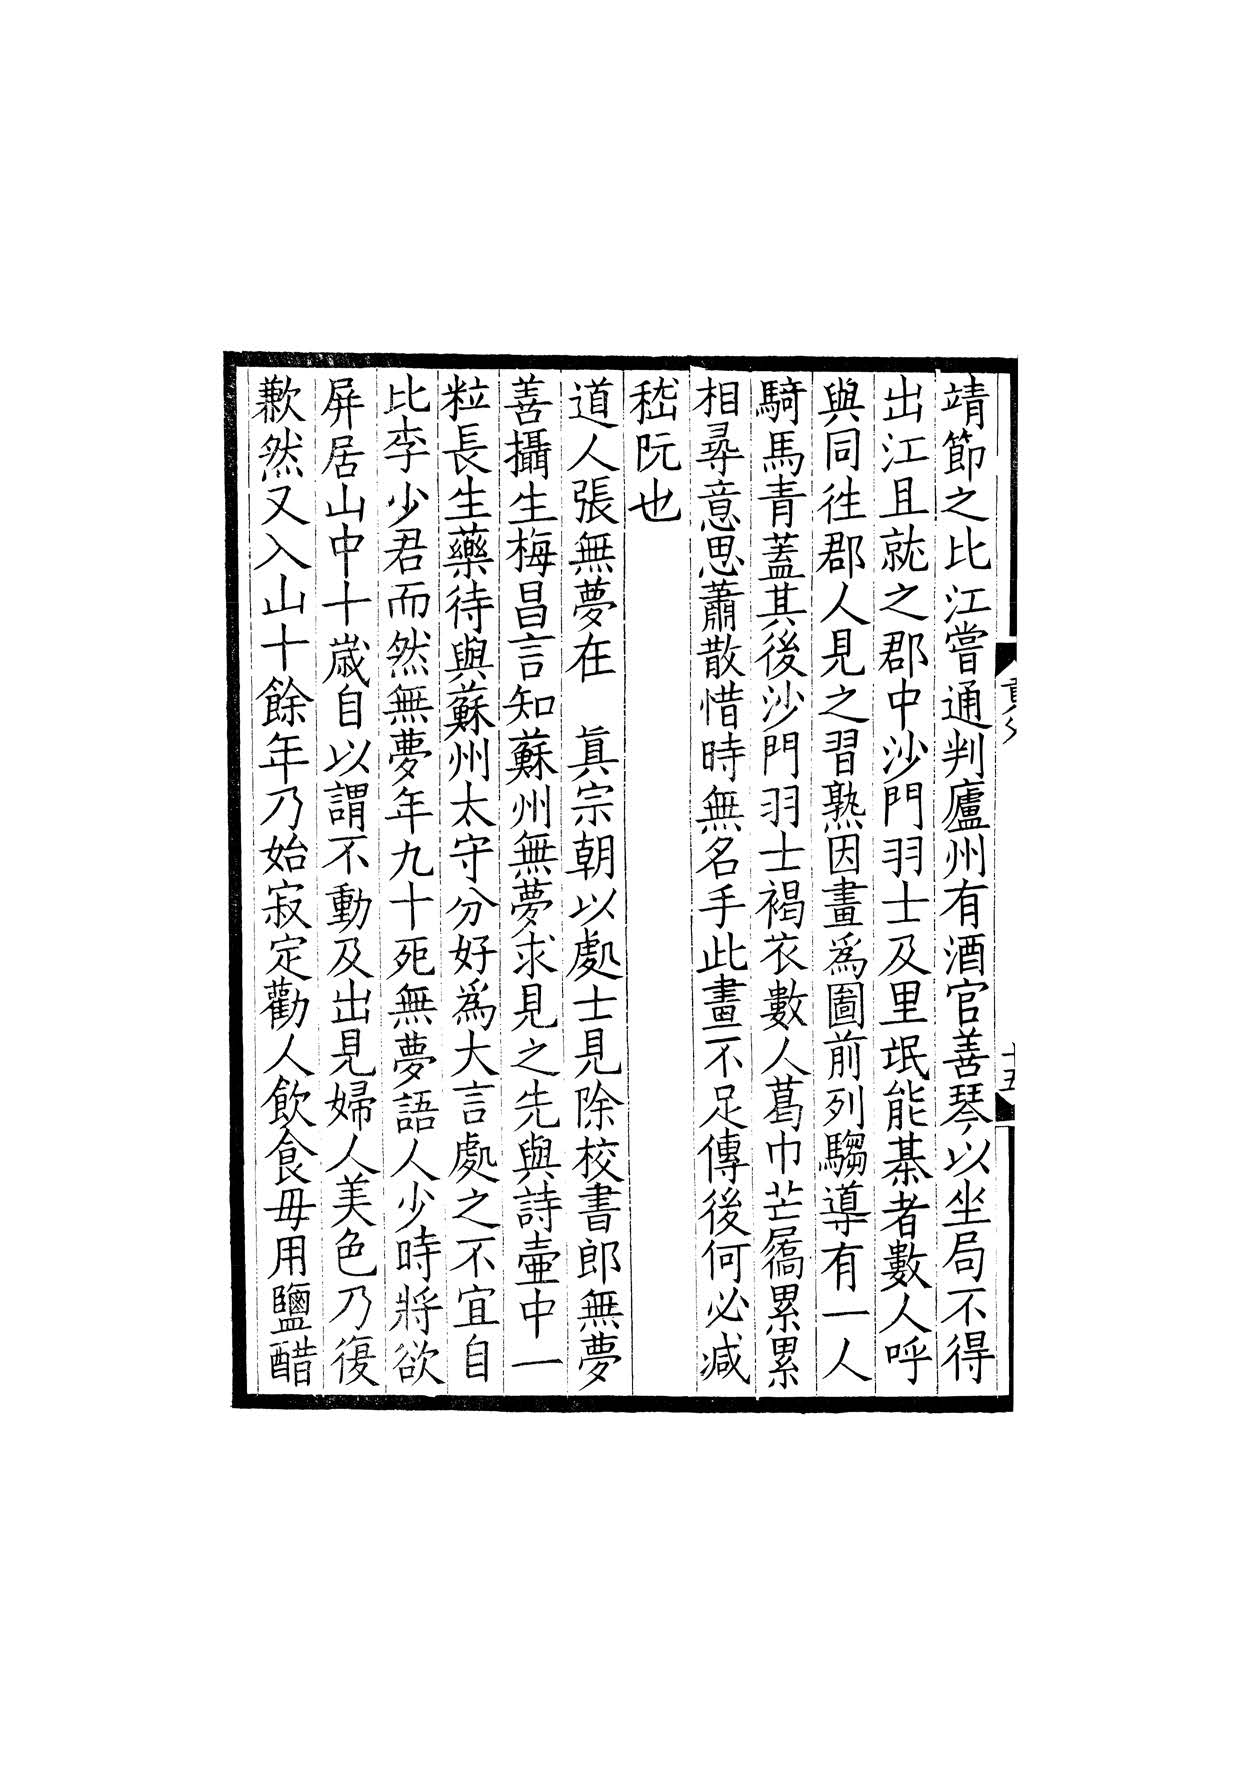 靖節之比江嘗通判廬州有酒官善琴以坐局不得
出江且就之郡中沙門羽士及里氓能棊者數人呼
與同徃郡人見之習熟因畫爲圖前列騶導有一人
騎馬青蓋其後沙門羽士褐衣數人葛巾芒屩累累
相尋意思蕭散惜時無名手此畫不足傳後何必減
嵇阮也
道人張無夢在　眞宗朝以處士見除校書郎無夢
善攝生梅昌言知蘇州無夢求見之先與詩壷中一
粒長生藥待與蘇州太守分好爲大言處之不宜自
比李少君而然無夢年九十死無夢語人少時將欲
屏居山中十歲自以謂不動及出見婦人美色乃復
歉然又入山十餘年乃始寂定勸人飲食毋用鹽醋